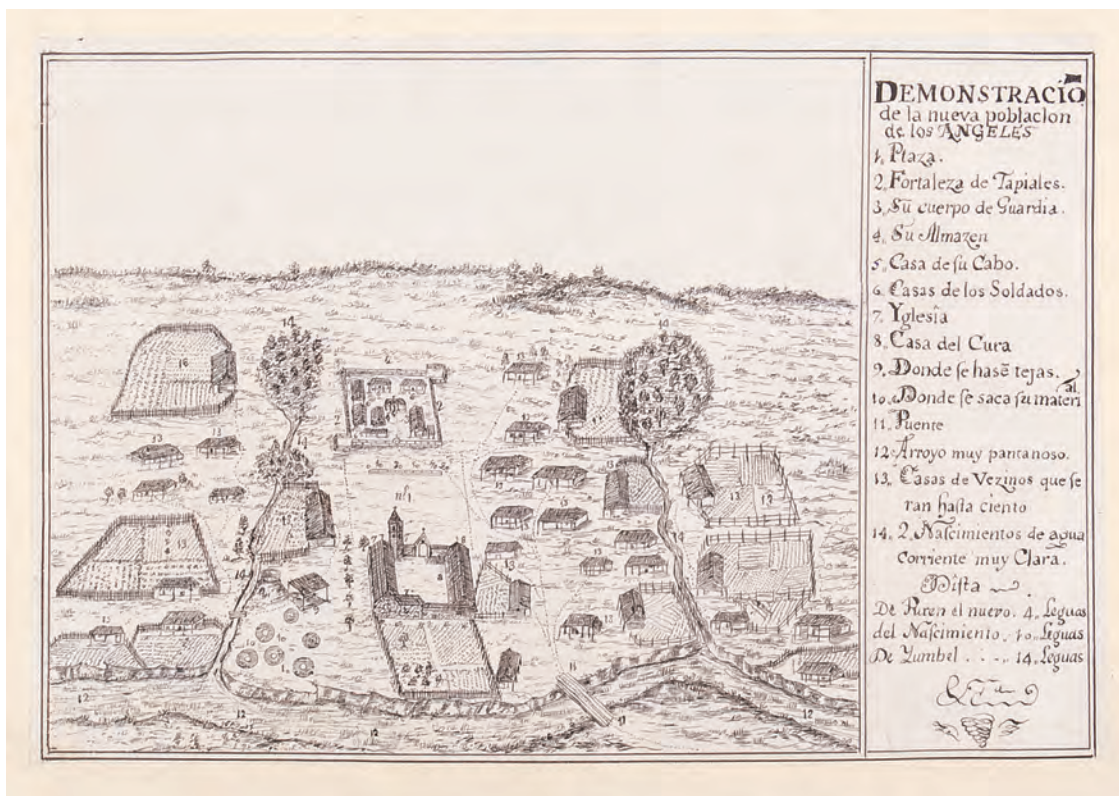 DEMONSTRACIÓ
de la nueva poblacion
de los ANGELES
1. Plaza.
2. Fortaleza de Tapiales.
3. Su cuerpo de Guardia.
4. Su Almazen
5. Casa de su Cabo.
6. Casas de los Soldados.
7. Yglesia
8. Casa del Cura
9. Donde se hasē tejas.
10. Donde se saca su material
11. Puente
12. Arroyo muy pantanoso.
13. Casas de Vezinos que se
ran hasta ciento
14. 2. Nascimientos de agua
corriente muy Clara.
Dista
De Puren el nuevo. 4. Leguas
del Nascimiento. 10. Leguas
De Yumbel . . . . 14. Leguas
14
16
13
13
13
nº 1
13
13
12
13
8
10
12
12
12
12